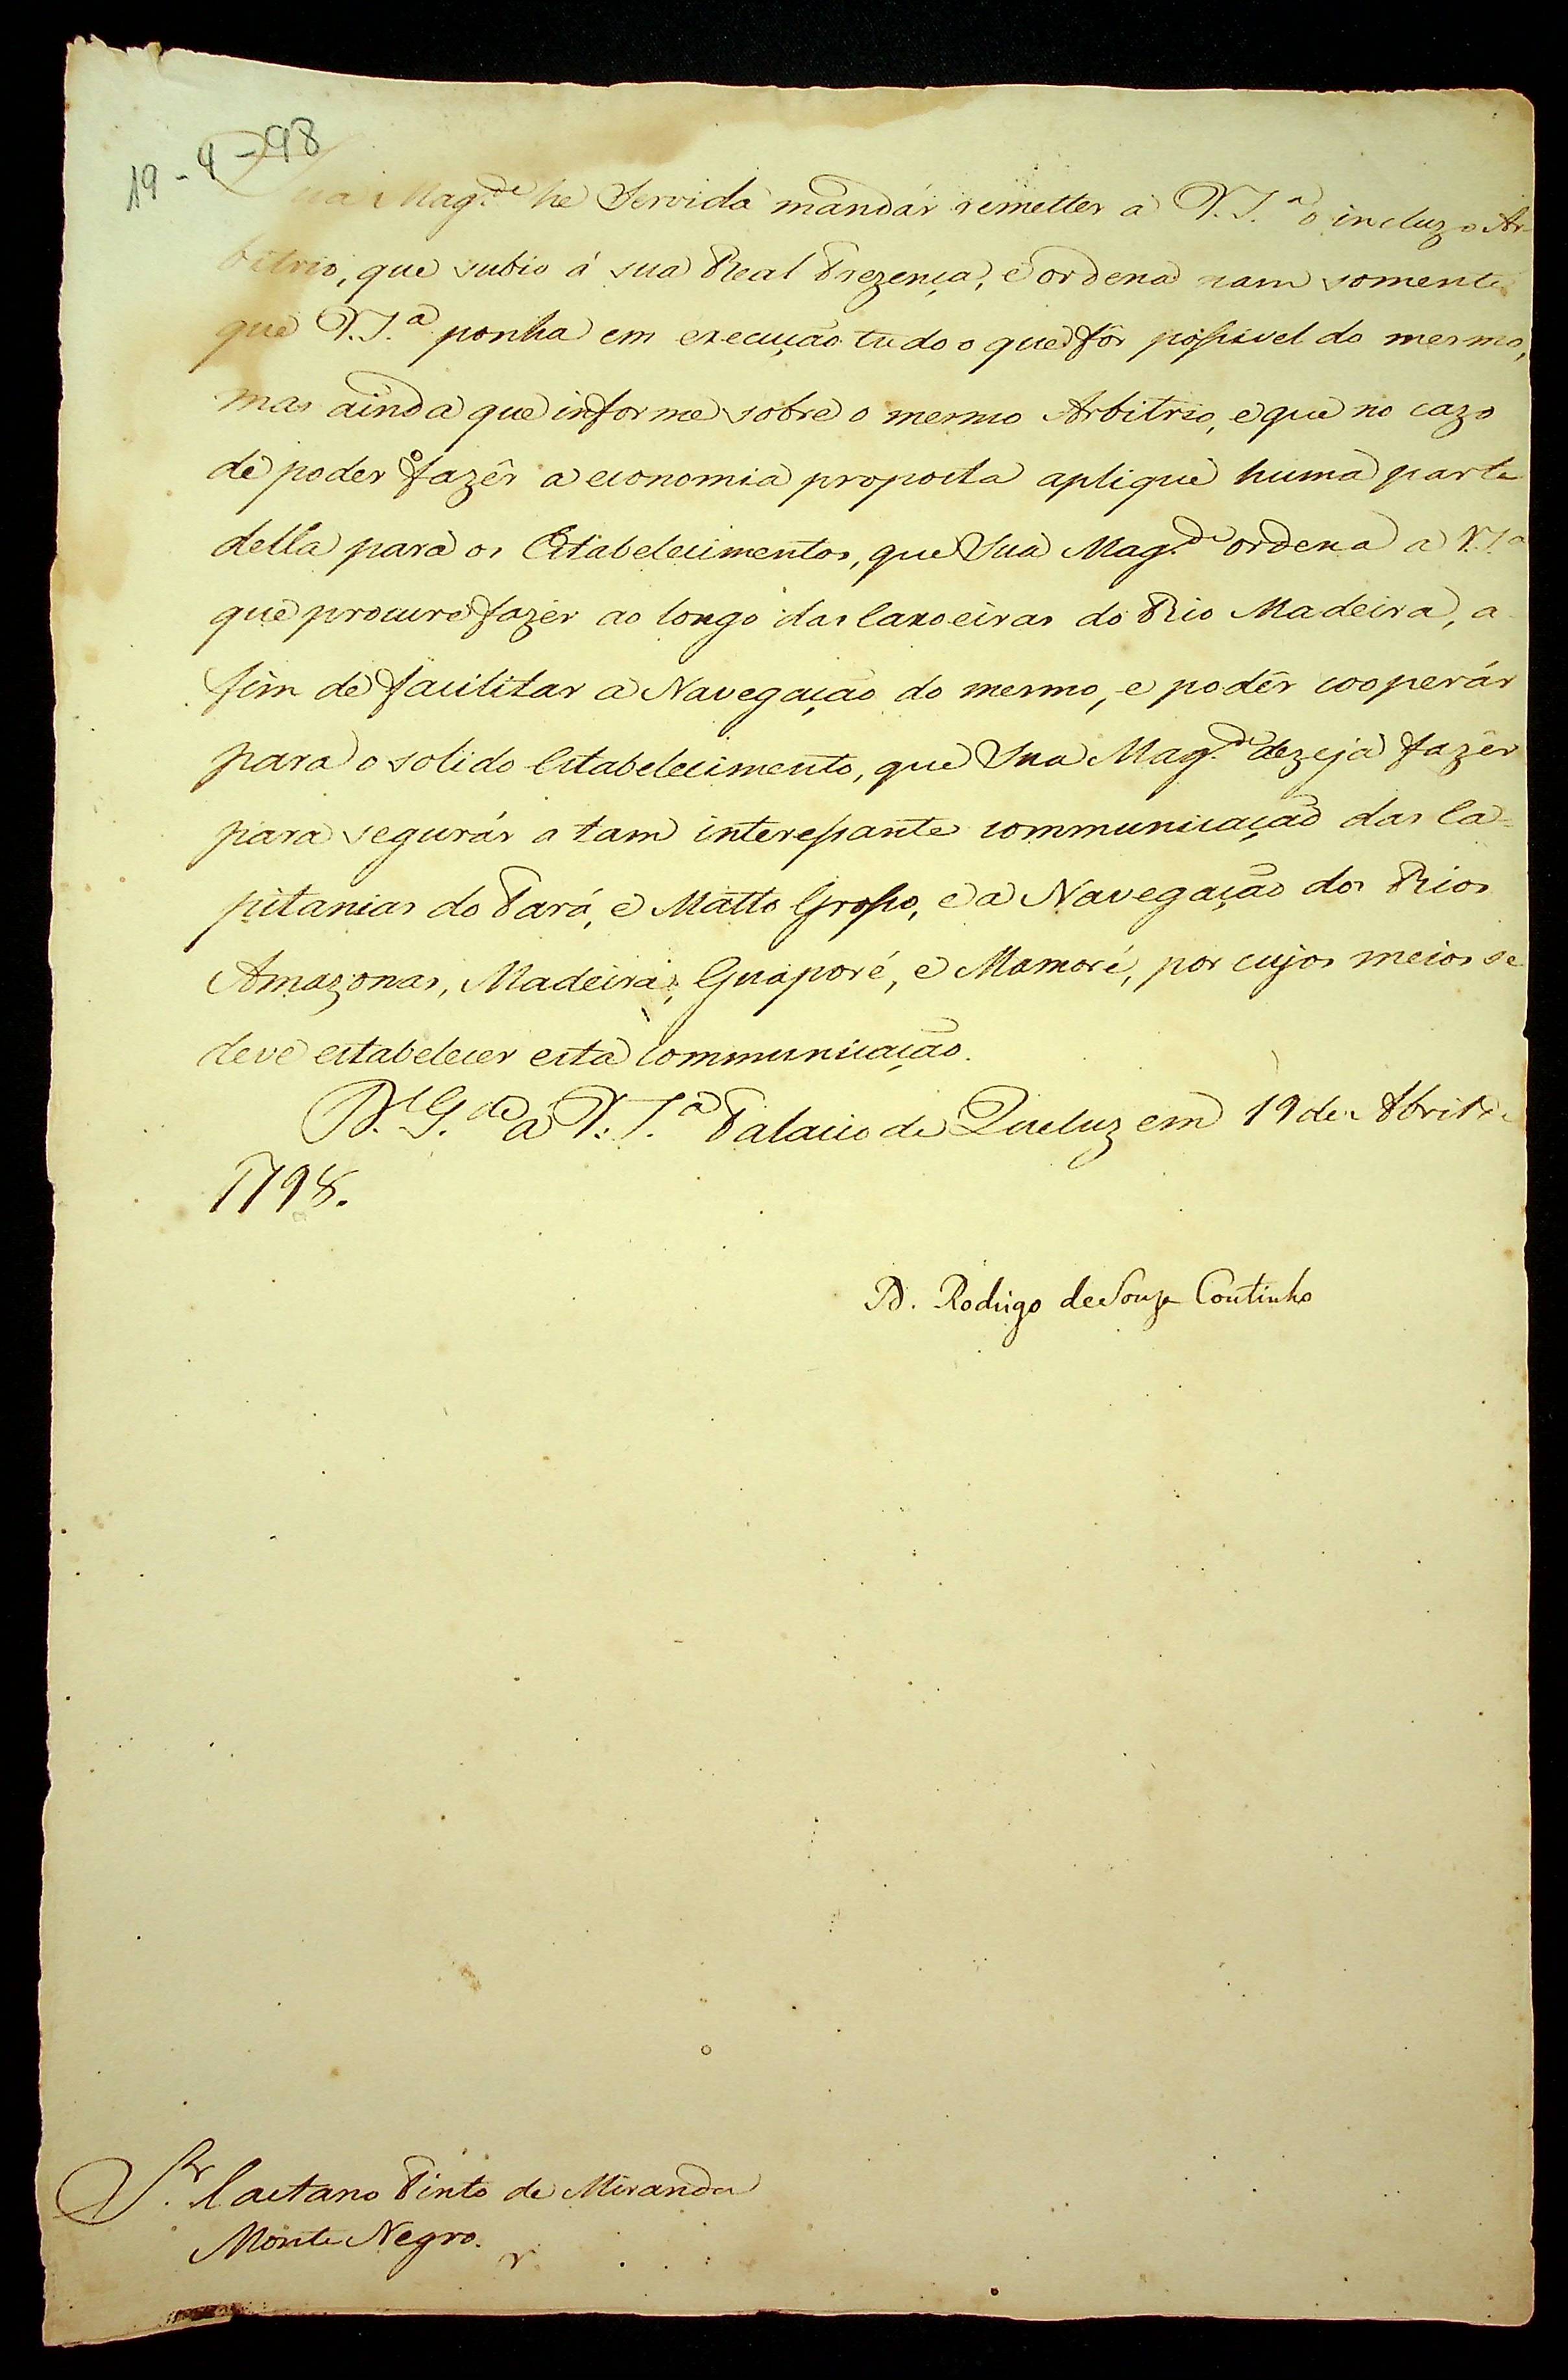 19-4-98
Sua Mag.de he Servida mandár remetter a V.S.a o incluzo Ar-
bitrio, que subio á sua Real Prezença, e ordena nam somente
que V.S.a ponha em execução tudo o que fôr possivel do mesmo,
mas ainda que informe sobre o mesmo Arbitrio, e que no cazo
de poder fazêr a economia proposta aplique huma parte
della para os Estabelecimentos, que Sua Mag.de ordena a V.S.a
que procure fazer ao longo das Caxoeiras do Rio Madeira, a
fim de facilitar a Navegação do mesmo, e podêr cooperár
para o solido Estabelecimento, que Sua Mag.de dezeja fazêr
para segurár a tam interessante communicação das Ca-
pitanias do Pará, e Matto Grosso, e a Navegação dos Rios
Amazonas, Madeira, Guaporé, e Mamoré, por cujos meios se
deve estabelecer esta communicação.
D.s G.de a V.S.a Palacio de Queluz em 19 de Abril de
1798.
D. Rodrigo de Souza Coutinho
S.r Caetano Pinto de Miranda
Monte Negro.